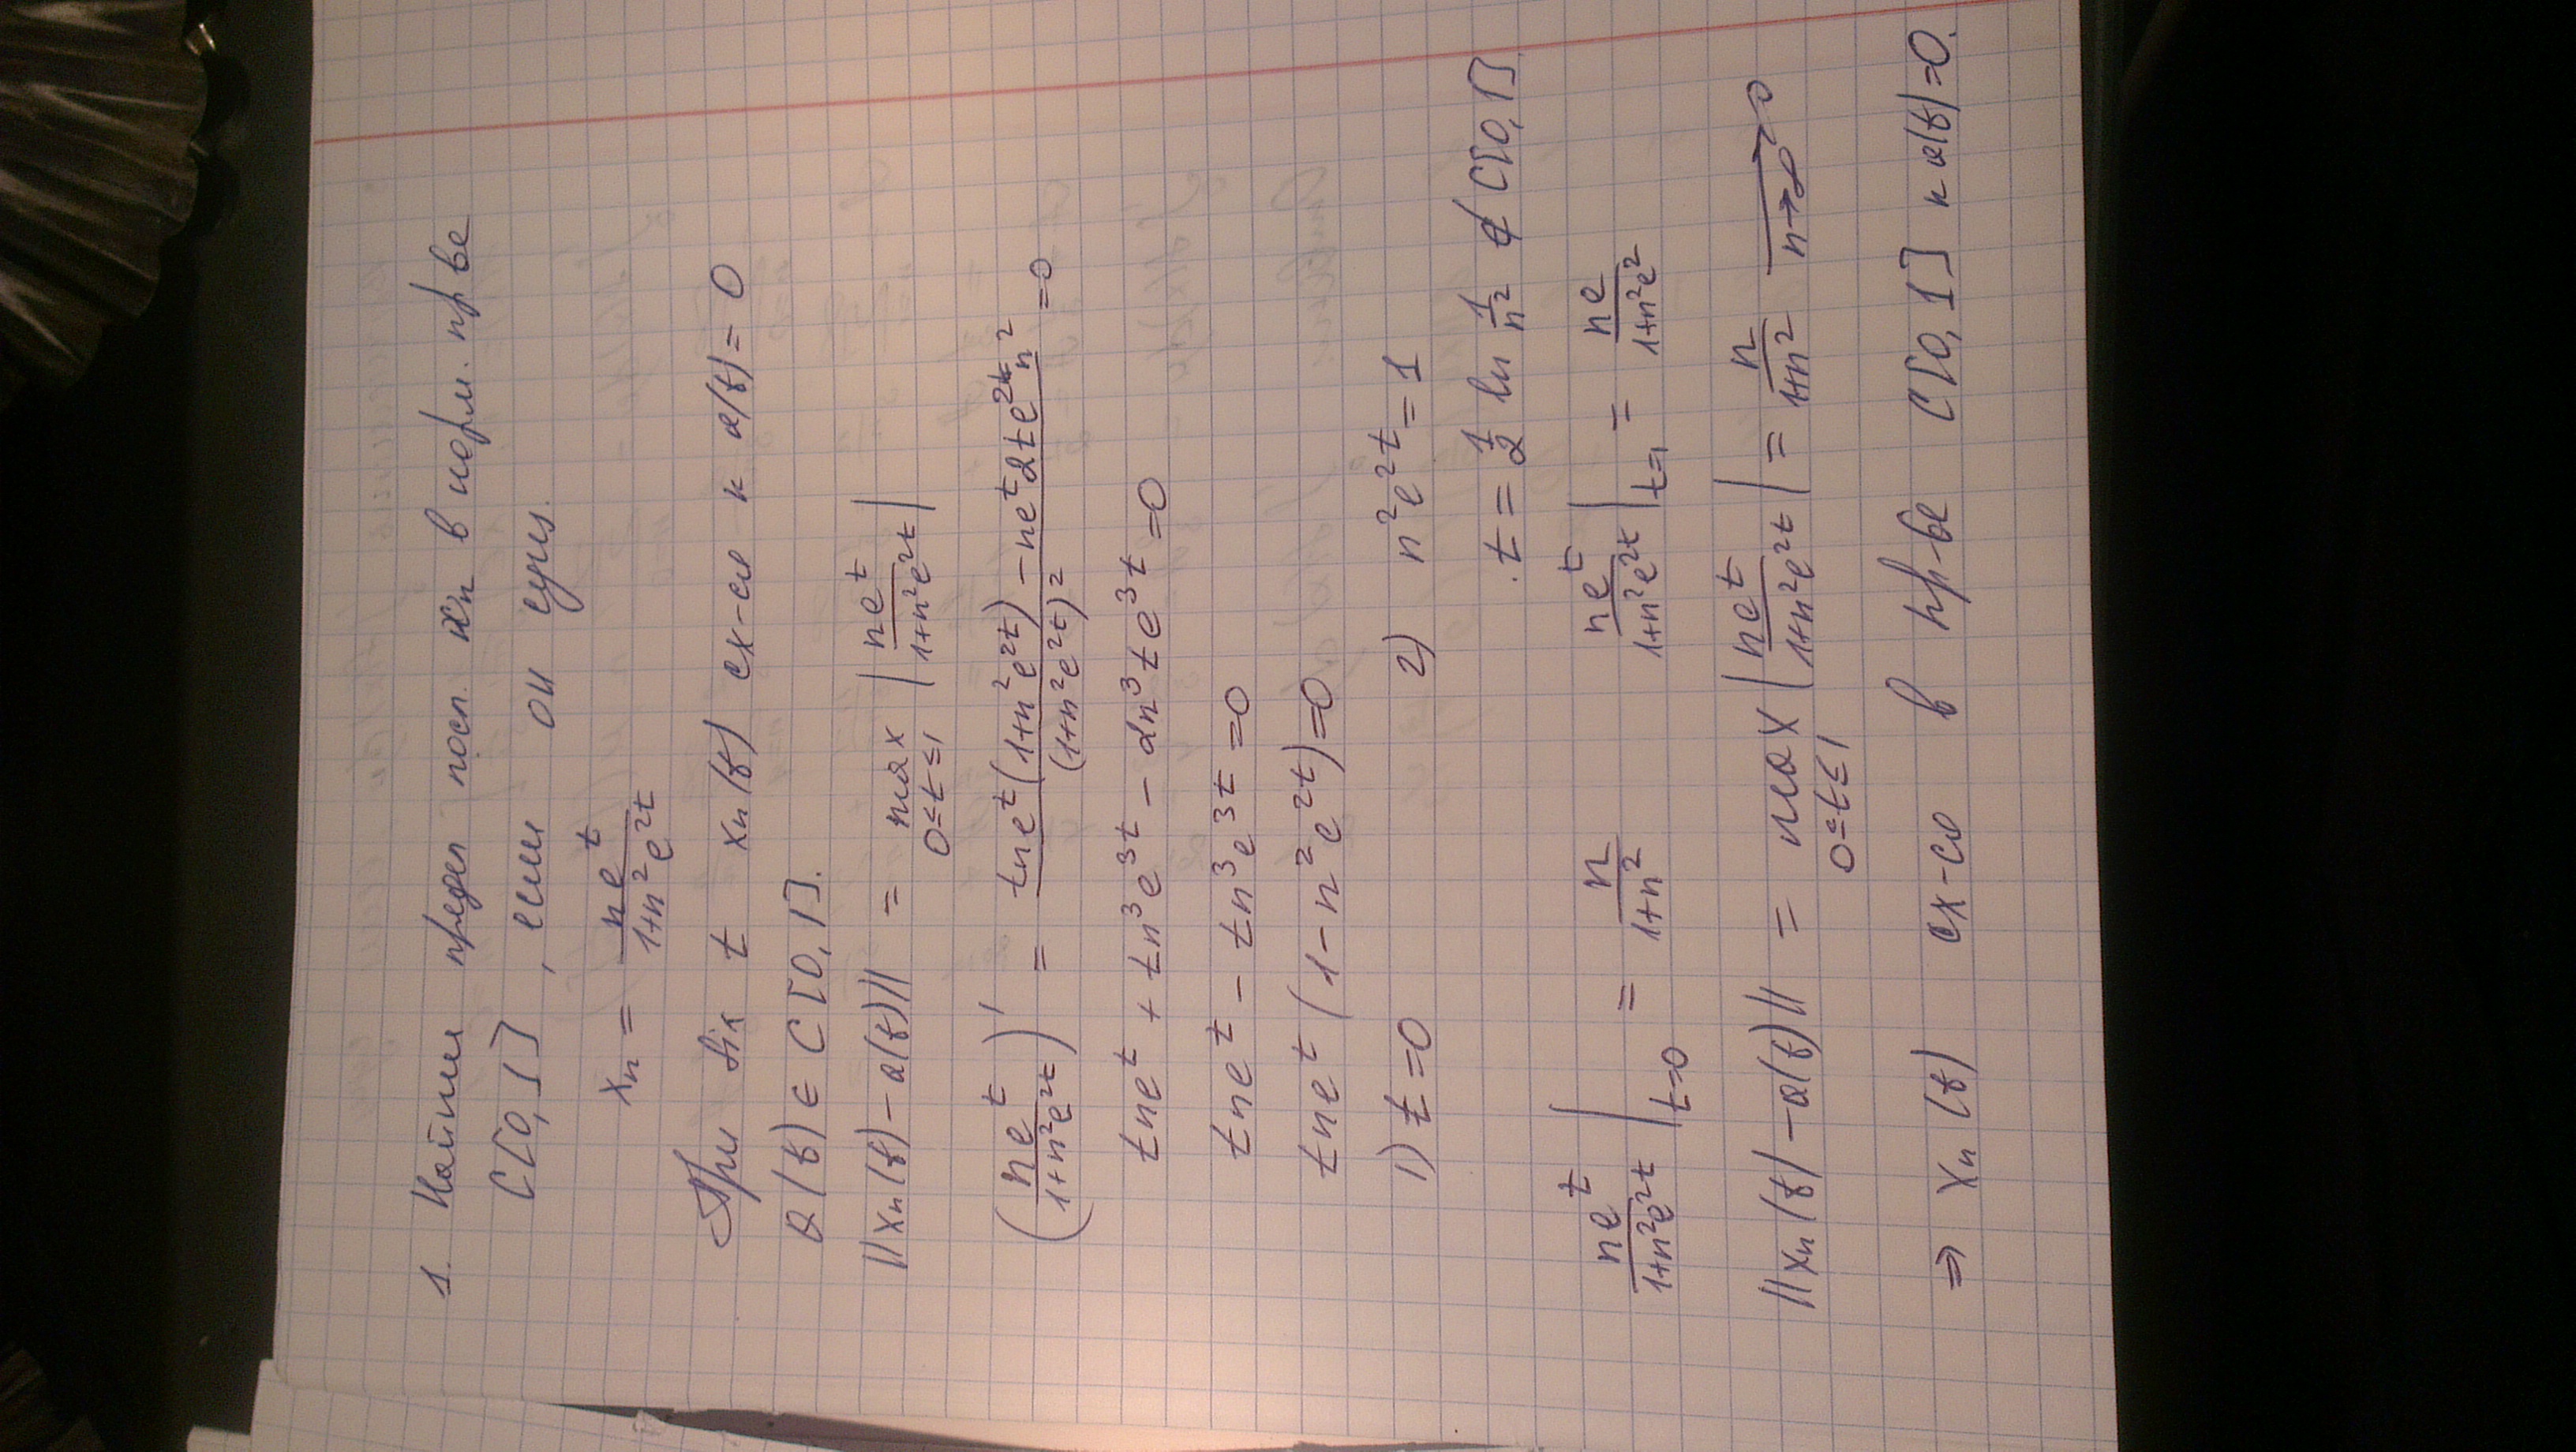 1. Найти предел посл. xₙ в норм. пр-ве
C[0,1], если он сущ.
xₙ = ne^t / (1+n²e^{2t})
При fix t xₙ(t) сх-ся к a(t)=0
a(t) ∈ C[0,1].
||xₙ(t) − a(t)|| = max_{0≤t≤1} | ne^t / (1+n²e^{2t}) |
( ne^t / (1+n²e^{2t}) )' = (tne^t(1+n²e^{2t}) − ne^t 2te^{2t}n²) / (1+n²e^{2t})² = 0
tne^t + tn³e^{3t} − 2n³te^{3t} = 0
tne^t − tn³e^{3t} = 0
tne^t(1 − n²e^{2t}) = 0
1) t=0 2) n²e^{2t} = 1
t = 1/2 ln 1/n² ∉ C[0,1]
ne^t / (1+n²e^{2t}) |_{t=0} = n / (1+n²) ne^t / (1+n²e^{2t}) |_{t=1} = ne / (1+n²e²)
||xₙ(t) − a(t)|| = max_{0≤t≤1} | ne^t / (1+n²e^{2t}) | = n / (1+n²) →_{n→∞} 0
⇒ xₙ(t) сх-ся в пр-ве C[0,1] к a(t)=0.